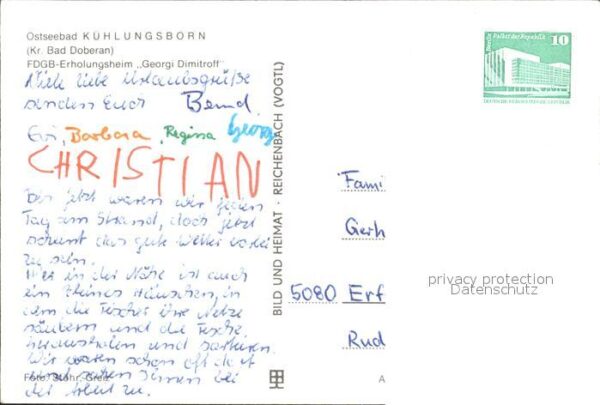 Ostseebad KÜHLUNGSBORN
(Kr. Bad Doberan)
FDGB-Erholungsheim „Georgi Dimitroff"
Viele liebe Urlaubsgrüße
senden Euch Bernd
Evi, Barbara, Regina Georg
CHRISTIAN
Bis jetzt waren wir jeden
Tag am Strand, doch jetzt
scheint das gute Wetter vorbei
zu sein.
Hier in der Nähe ist auch
ein kleines Häuschen, in
dem die Fischer ihre Netze
säubern und die Fische
herausholen und sortieren.
Wir waren schon oft dort
und sahen ihnen bei
der Arbeit zu.
Foto: Stöhr,
BILD UND HEIMAT · REICHENBACH (VOGTL)
Berlin Palast der Republik
10
DEUTSCHE DEMOKRATISCHE REPUBLIK
Fami
Gerh
5080 Erf
Rud
A
privacy protection
Datenschutz